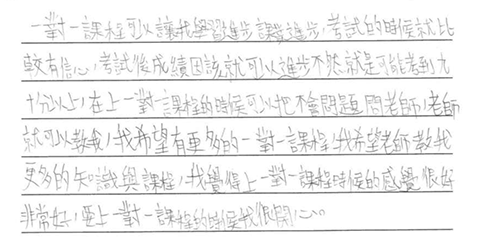 一對一課程可以讓我學習進步課業進步,考試的時候就比
較有信心,考試後成績因該就可以進步不然就是可能考到九
十分以上,在上一對一課程的時候可以把不會問題問老師,老師
就可以教我,我希望有更多的一對一課程,我希望老師教我
更多的知識與課程,我覺得上一對一課程時候的感覺很好
非常好,要上一對一課程的時候我很開心。